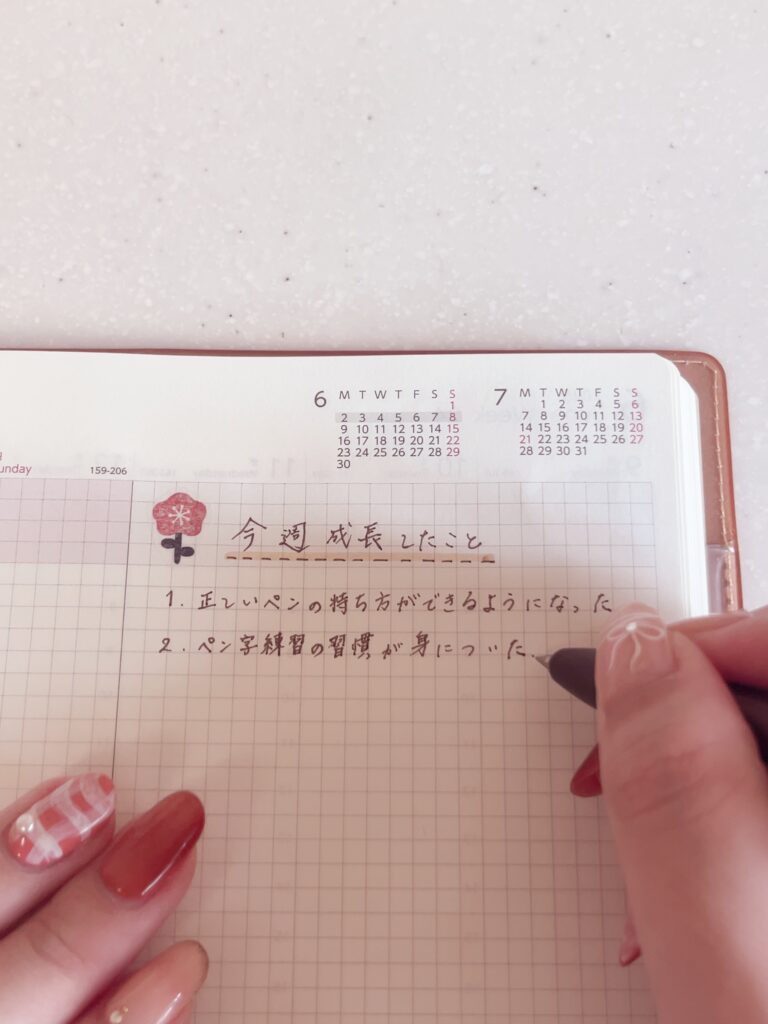 6 M T W T F S S
1
2 3 4 5 6 7 8
9 10 11 12 13 14 15
16 17 18 19 20 21 22
23 24 25 26 27 28 29
30
7 M T W T F S S
1 2 3 4 5 6
7 8 9 10 11 12 13
14 15 16 17 18 19 20
21 22 23 24 25 26 27
28 29 30 31
159-206
今週成長したこと
1. 正しいペンの持ち方ができるようになった
2. ペン字練習の習慣が身についた.